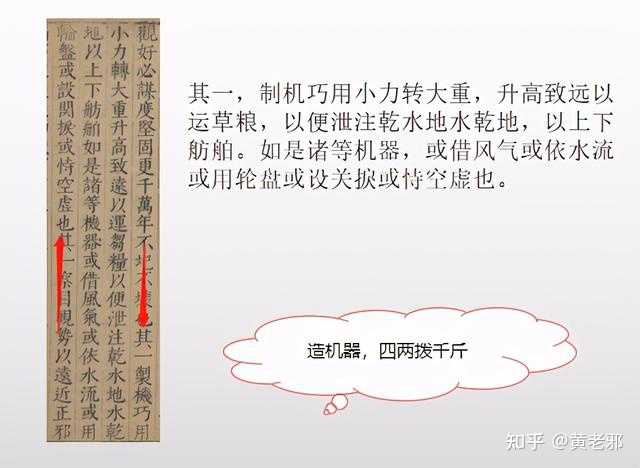 觀好必謀度堅固更千萬年不不壞也其一製機巧用
小力轉大重升高致遠以運芻糧以便泄注乾水地水乾
地以上下舫舶如是諸等機器或借風氣或依水流或用
輪盤或設關捩或恃空虛也其一察目視勢以遠近正邪
其一，制机巧用小力转大重，升高致远以
运草粮，以便泄注乾水地水乾地，以上下
舫舶。如是诸等机器，或借风气或依水流
或用轮盘或设关捩或恃空虚也。
造机器，四两拨千斤
知乎 @黄老邪